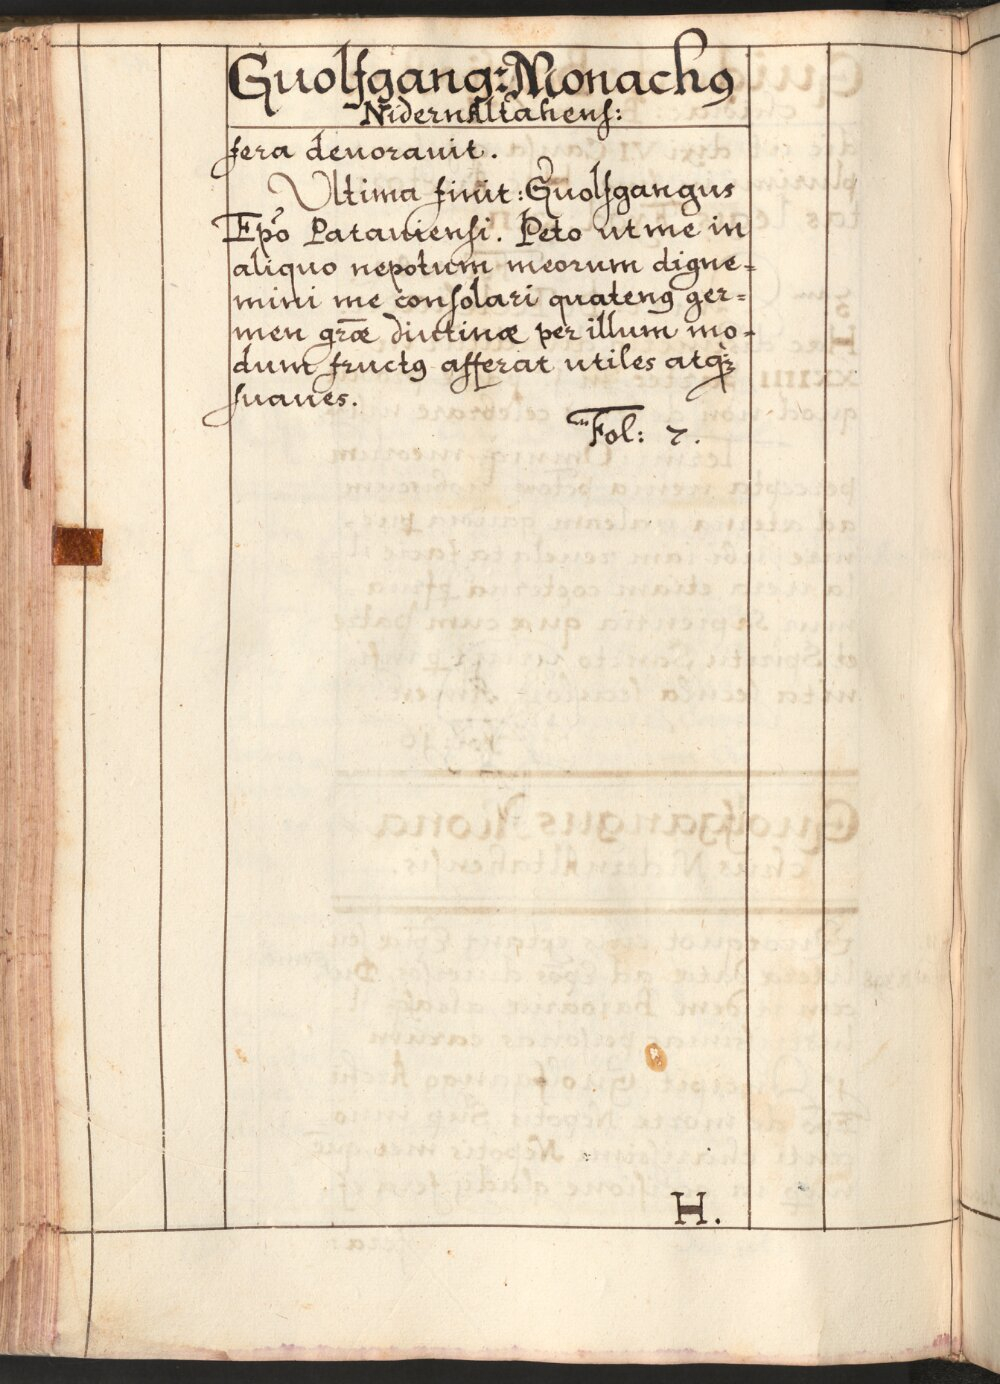 Guolfgang: Monachꝰ
NidernAltahens:
fera deuorauit.
Ultima finit: Guolfgangus
Ep̄o Patauiensi. Peto ut me in
aliquo nepotum meorum digne=
mini me consolari quatenꝰ ger=
men gr̄æ diutinæ per illum mo-
dum fructꝰ afferat utiles atqꝫ
suaues.
Fol: 7.
H.